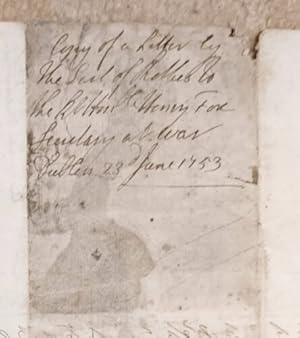 Copy of a Letter by
the Earl of Rothes to
the Rt Honble Henry Fox
Secretary at War
Dublin 23d June 1753